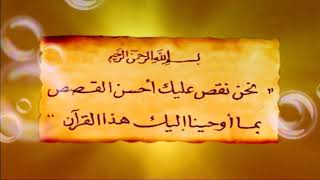 بسم الله الرحمن الرحيم
" نحن نقص عليك أحسن القصص
بما أوحينا إليك هذا القرآن "